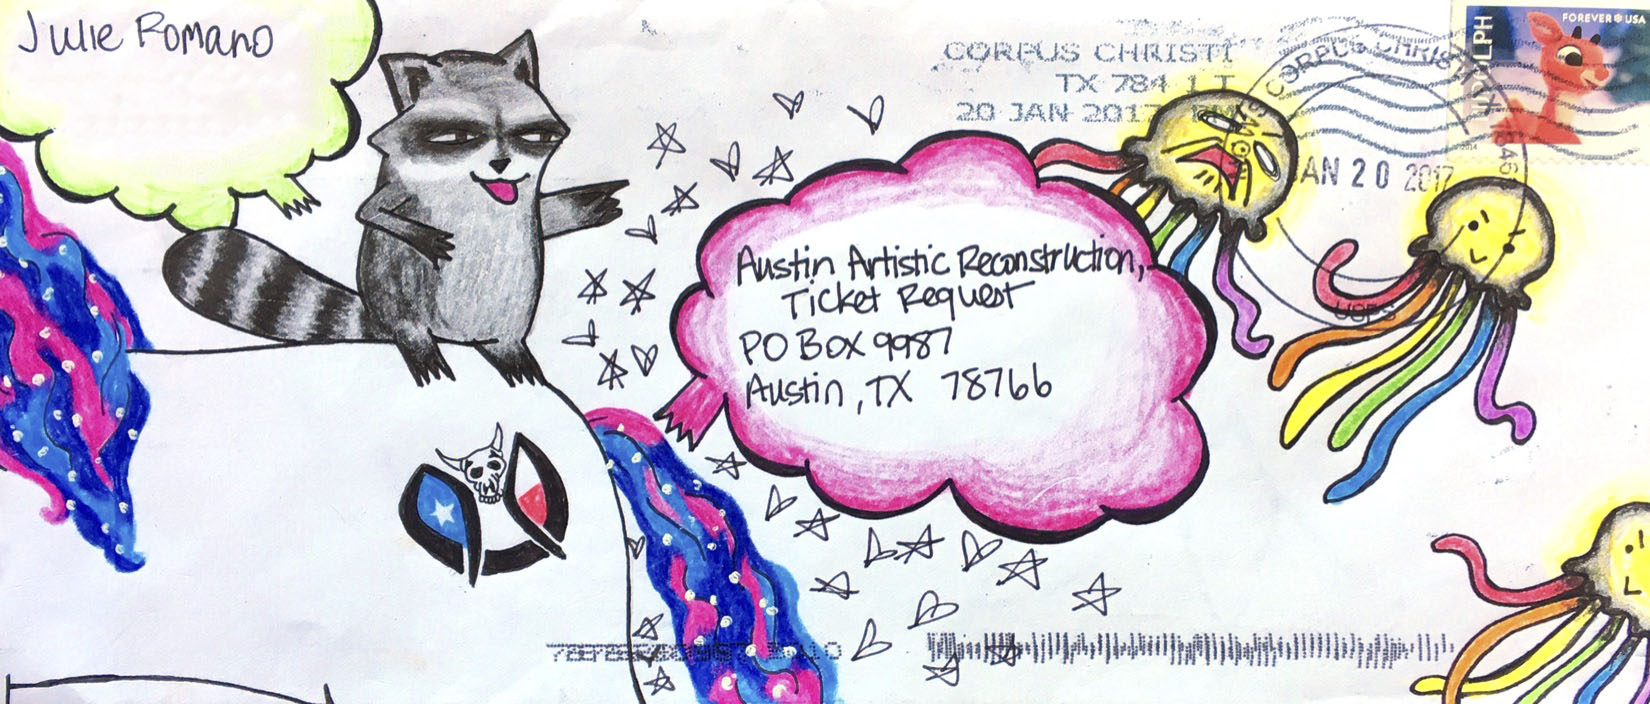 Julie Romano
CORPUS CHRISTI
TX 784 1 T
20 JAN 2017 PM
CORPUS CHRISTI
FOREVER USA
RUDOLPH
2014
JAN 20 2017
USPS
Austin Artistic Reconstruction,
Ticket Request
PO Box 9987
Austin, TX 78766